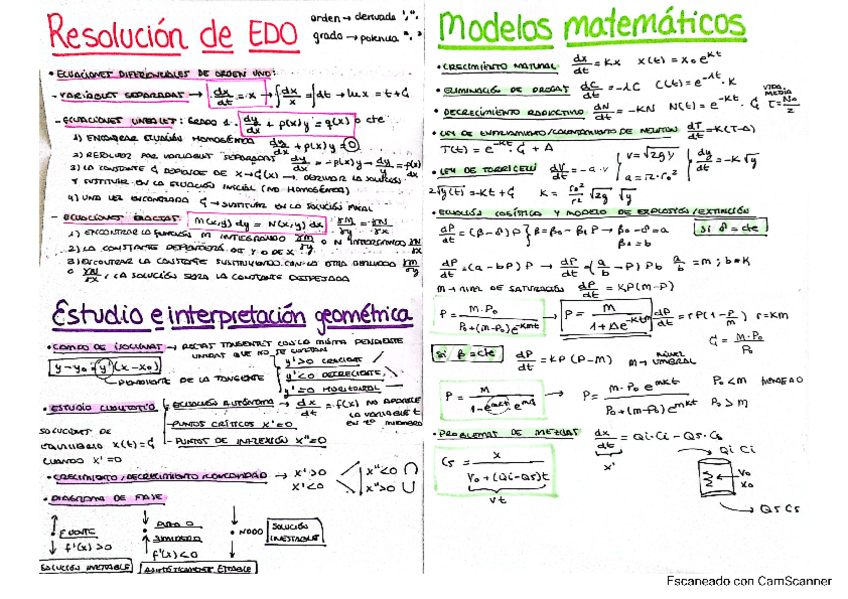 Resolución de EDO
orden → derivada ', ''.
grado → potencia
• ECUACIONES DIFERENCIALES DE ORDEN UNO:
- VARIABLES SEPARADAS → dx/dt = x → ∫dx/x = ∫dt → ln x = t + C
- ECUACIONES LINEALES: GRADO 1. dy/dx + p(x)y = q(x) o cte
1) ENCONTRAR ECUACIÓN HOMOGÉNEA dy/dx + p(x)y = 0
2) RESOLVER POR VARIABLES SEPARADAS dy/dx = -p(x)y → dy/y = -p(x)
3) LA CONSTANTE C DEPENDE DE X → C(x) → DERIVAR LA SOLUCIÓN
Y SUSTITUIR EN LA ECUACIÓN INICIAL (NO HOMOGÉNEA)
4) UNA VEZ ENCONTRADA C → SUSTITUIR EN LA SOLUCIÓN FINAL
- ECUACIONES EXACTAS: M(x,y) dy = N(x,y) dx
1) ENCONTRAR LA FUNCIÓN INTEGRANDO
2) LA CONSTANTE DEPENDERÁ DE Y O DE X
3) ENCONTRAR LA CONSTANTE SUSTITUYENDO CON LA OTRA DERIVADA
LA SOLUCIÓN SERÁ LA CONSTANTE DESPEJADA
Estudio e interpretación geométrica
• CAMPO DE ISOCLINAS → RECTAS TANGENTES CON LA MISMA PENDIENTE
QUE NO SE CORTAN
y - y₀ = y'(x - x₀)
PENDIENTE DE LA TANGENTE
y' > 0 CRECIENTE
y' < 0 DECRECIENTE
y' = 0 HORIZONTAL
• ESTUDIO CUALITATIVO
- ECUACIÓN AUTÓNOMA → dx/dt = f(x) NO APARECE
LA VARIABLE t
EN 2º MIEMBRO
- PUNTOS CRÍTICOS x' = 0
- PUNTOS DE INFLEXIÓN x'' = 0
SOLUCIONES DE
EQUILIBRIO x(t) = C
CUANDO x' = 0
• CRECIMIENTO/DECRECIMIENTO/CONCAVIDAD → x' > 0 x'' < 0 ∩
x' < 0 x'' > 0 ∪
• DIAGRAMA DE FASE
• FUENTE
f'(x) > 0
SOLUCIÓN INESTABLE
• SUMIDERO
f'(x) < 0
ASINTÓTICAMENTE ESTABLE
• NODO
SOLUCIÓN
INESTABLE
Modelos matemáticos
• CRECIMIENTO NATURAL dx/dt = Kx x(t) = x₀e^Kt
• ELIMINACIÓN DE DROGAS dC/dt = -λC C(t) = e^-λt · K
• DECRECIMIENTO RADIOACTIVO dN/dt = -KN N(t) = e^-Kt · C
VIDA
MEDIA
τ = N₀/2
• LEY DE ENFRIAMIENTO/CALENTAMIENTO DE NEWTON dT/dt = K(T-A)
T(t) = e^-Kt · C + A
• LEY DE TORRICELLI dV/dt = -a·v
v = √2gy
a = π·r₀²
dy/dt = -K√y
2√y(t) = -Kt + C K = r₀²/r² √2g √y
• ECUACIÓN LOGÍSTICA Y MODELO DE EXPLOSIÓN/EXTINCIÓN
dP/dt = (β - δ)P β = β₀ - β₁P → β₀ - δ = a
β₁ = b
si δ = cte
dP/dt = (a - bP)P → dP/dt = (a/b - P)Pb a/b = m; b = K
m → NIVEL DE SATURACIÓN dP/dt = KP(M-P)
P = m·P₀ / P₀ + (m-P₀)e^-Kmt → P = m / 1 + Ae^-Kmt
dP/dt = rP(1 - P/m) r = Km
C = m·P₀/P₀
si β = cte dP/dt = KP(P-M) M → NIVEL
UMBRAL
P = m·P₀e^mKt / P₀ + (m-P₀)e^mKt
P₀ < m
P₀ > m
• PROBLEMAS DE MEZCLAS dx/dt = Qi·Ci - Qs·Cs
x'
Cs = x / V₀ + (Qi-Qs)t
Vt
Qi Ci
V₀
x₀
Qs Cs
Escaneado con CamScanner